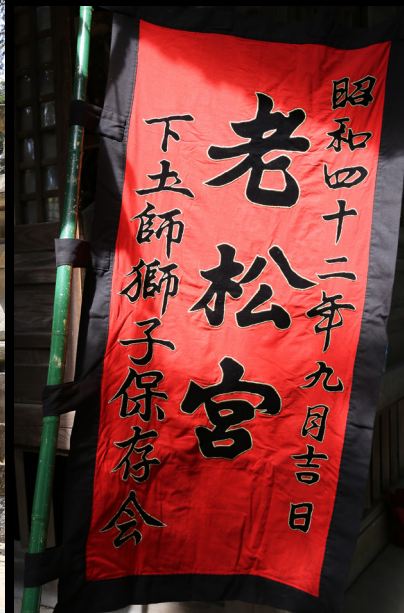 昭和四十二年九月吉日
老松宮
下土師獅子保存会